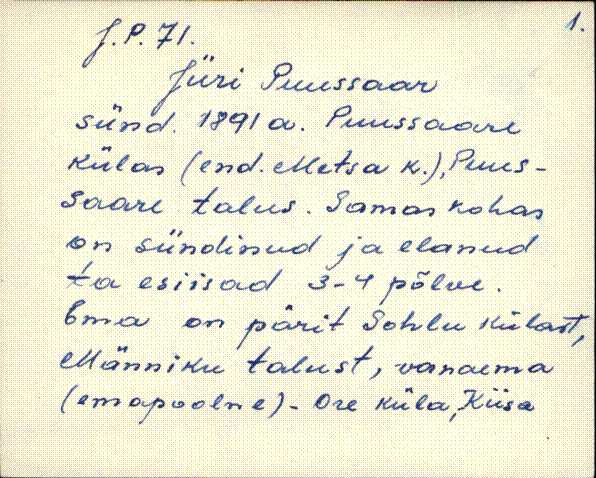 1.
J.P. 71.
Jüri Puussaar
sünd. 1891 a. Puussaare
külas (end. Metsa k.), Puus-
saare talus. Samas kohas
on sündinud ja elanud
ta esiisad 3-4 põlve.
Ema on pärit Sohlu külast,
Männiku talust, vanaema
(emapoolne) - Ore küla, Kiisa